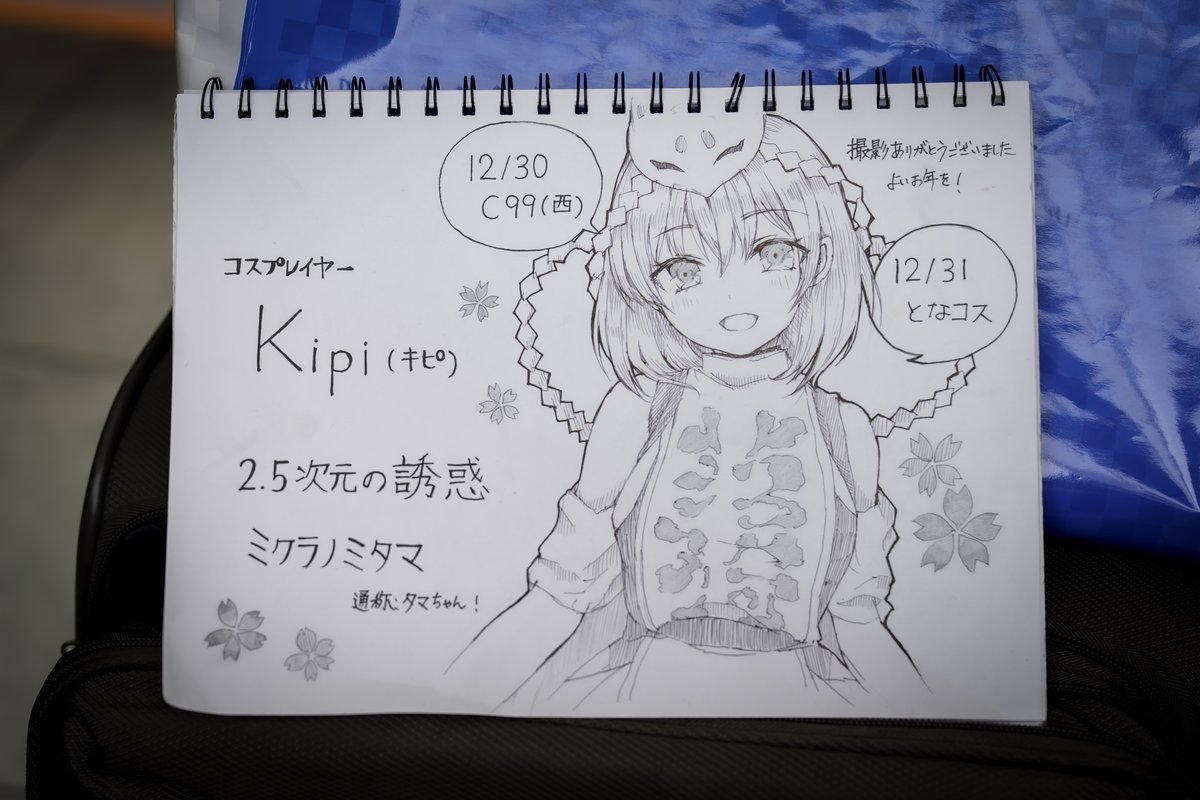 12/30
C99(西)
撮影ありがとうございました
よいお年を!
12/31
となコス
コスプレイヤー
Kipi(キピ)
2.5次元の誘惑
ミクラノミタマ
通称:タマちゃん!